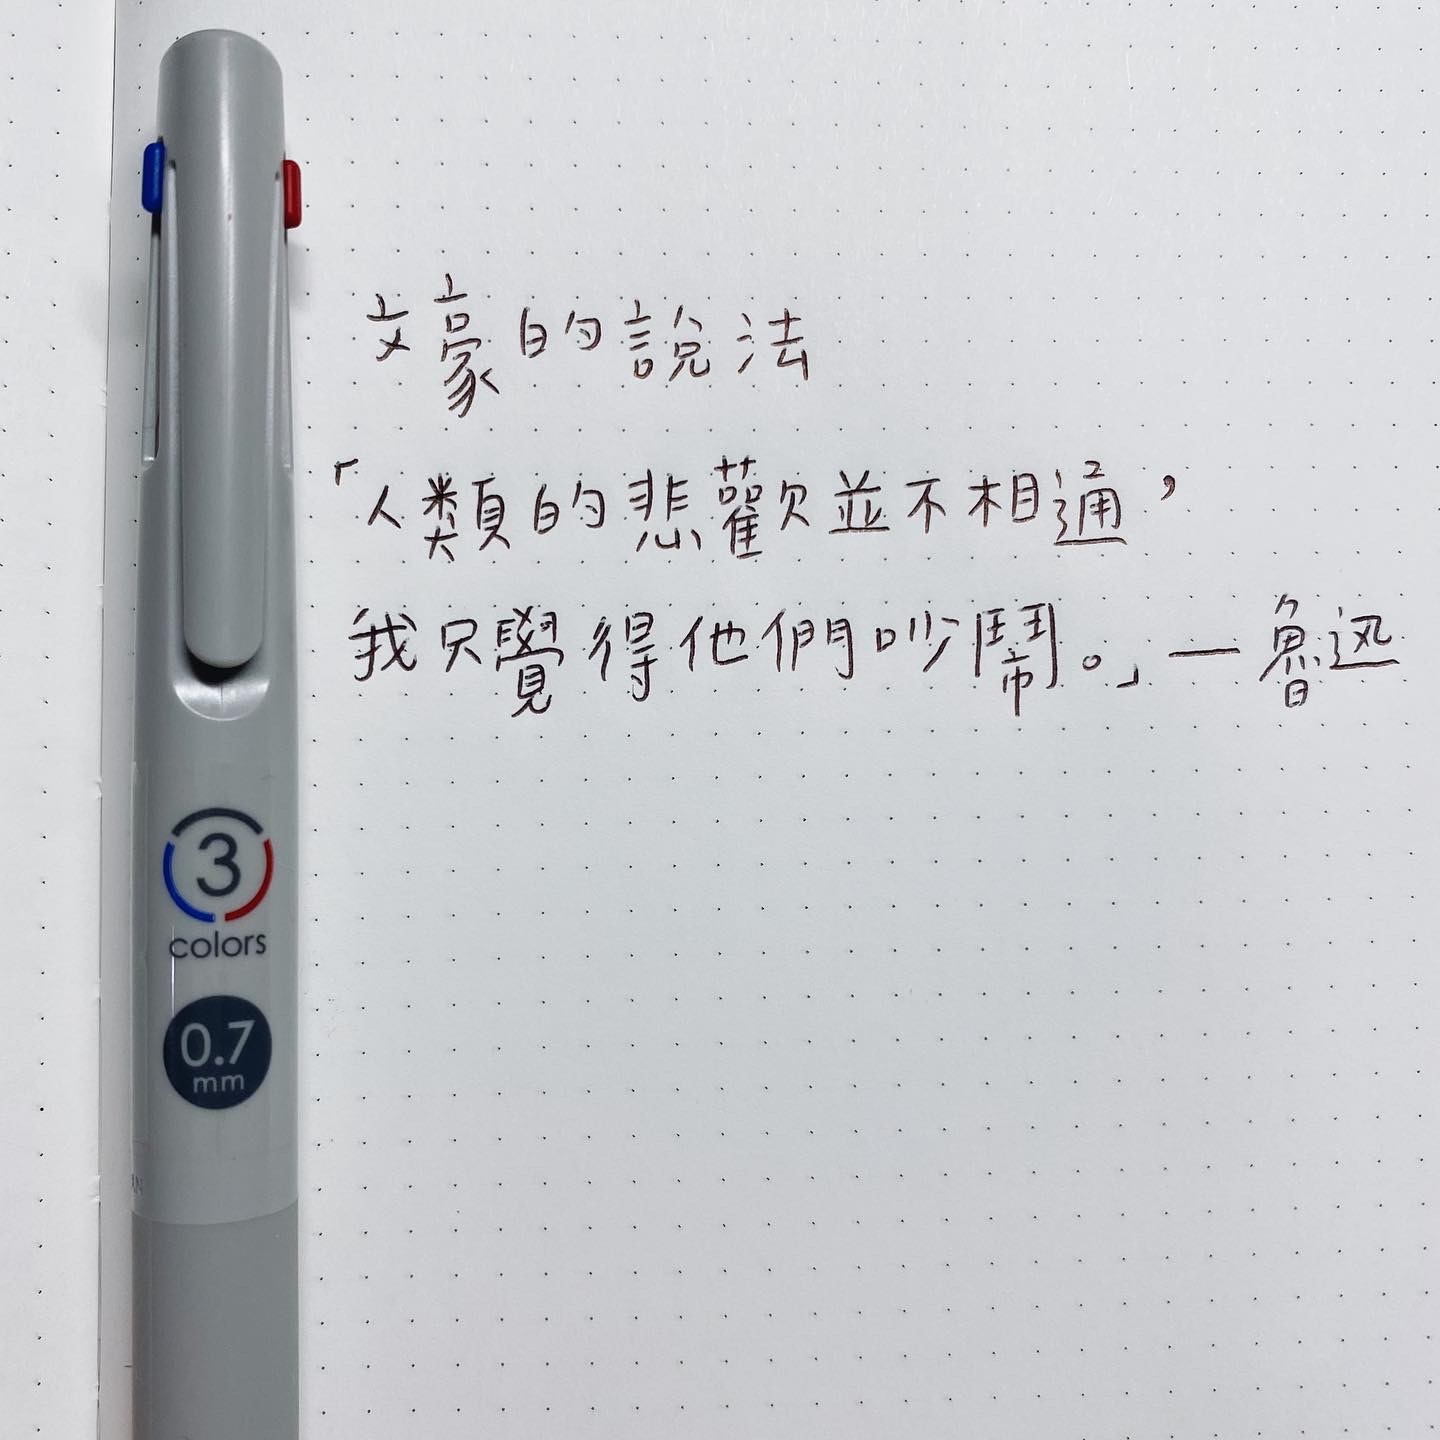 文豪的說法
「人類的悲歡並不相通，
我只覺得他們吵鬧。」—魯迅
3
colors
0.7
mm